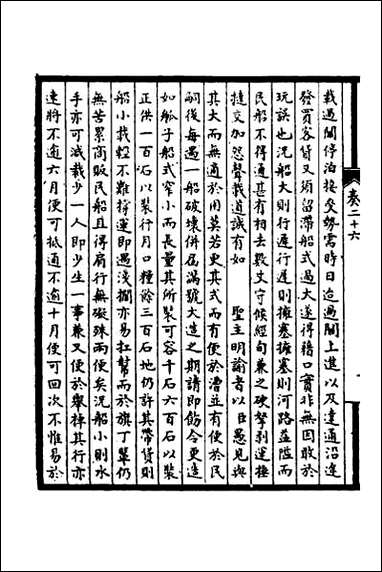 卷二十六
載過閘停泊接癸勢需時日迨過閘上進以及達通沿途
發買客貨又須留滯船式過大遂得藉口實非無因敢於
玩誤也況船大則行遲行遲則擁塞擁塞則河路益阻而
民船不得通甚有相去數丈守候經旬兼之硬擎剝運捶
撻交加怨聲載道誠有如 聖主明諭者以臣愚見與
其大而無適於用莫若更其式而有便於漕並有便於民
嗣後每遇一船破壞併屆滿號大造之期請即飭令更造
如瓜子船式窄小而長量其所裝可容千石六百石以裝
正供一百石以裝行月口糧餘三百石地仍許其帶貨則
船小載輕不難撐運即遇淺擱亦易扛幫而於旗丁輩仍
無苦累商販民船且得扃行無礙殊兩便矣況船小則水
手亦可減裁少一人即少生一事兼又便於舉棹其行亦
速將不逾六月便可抵通不逾十月便可回次不惟易於